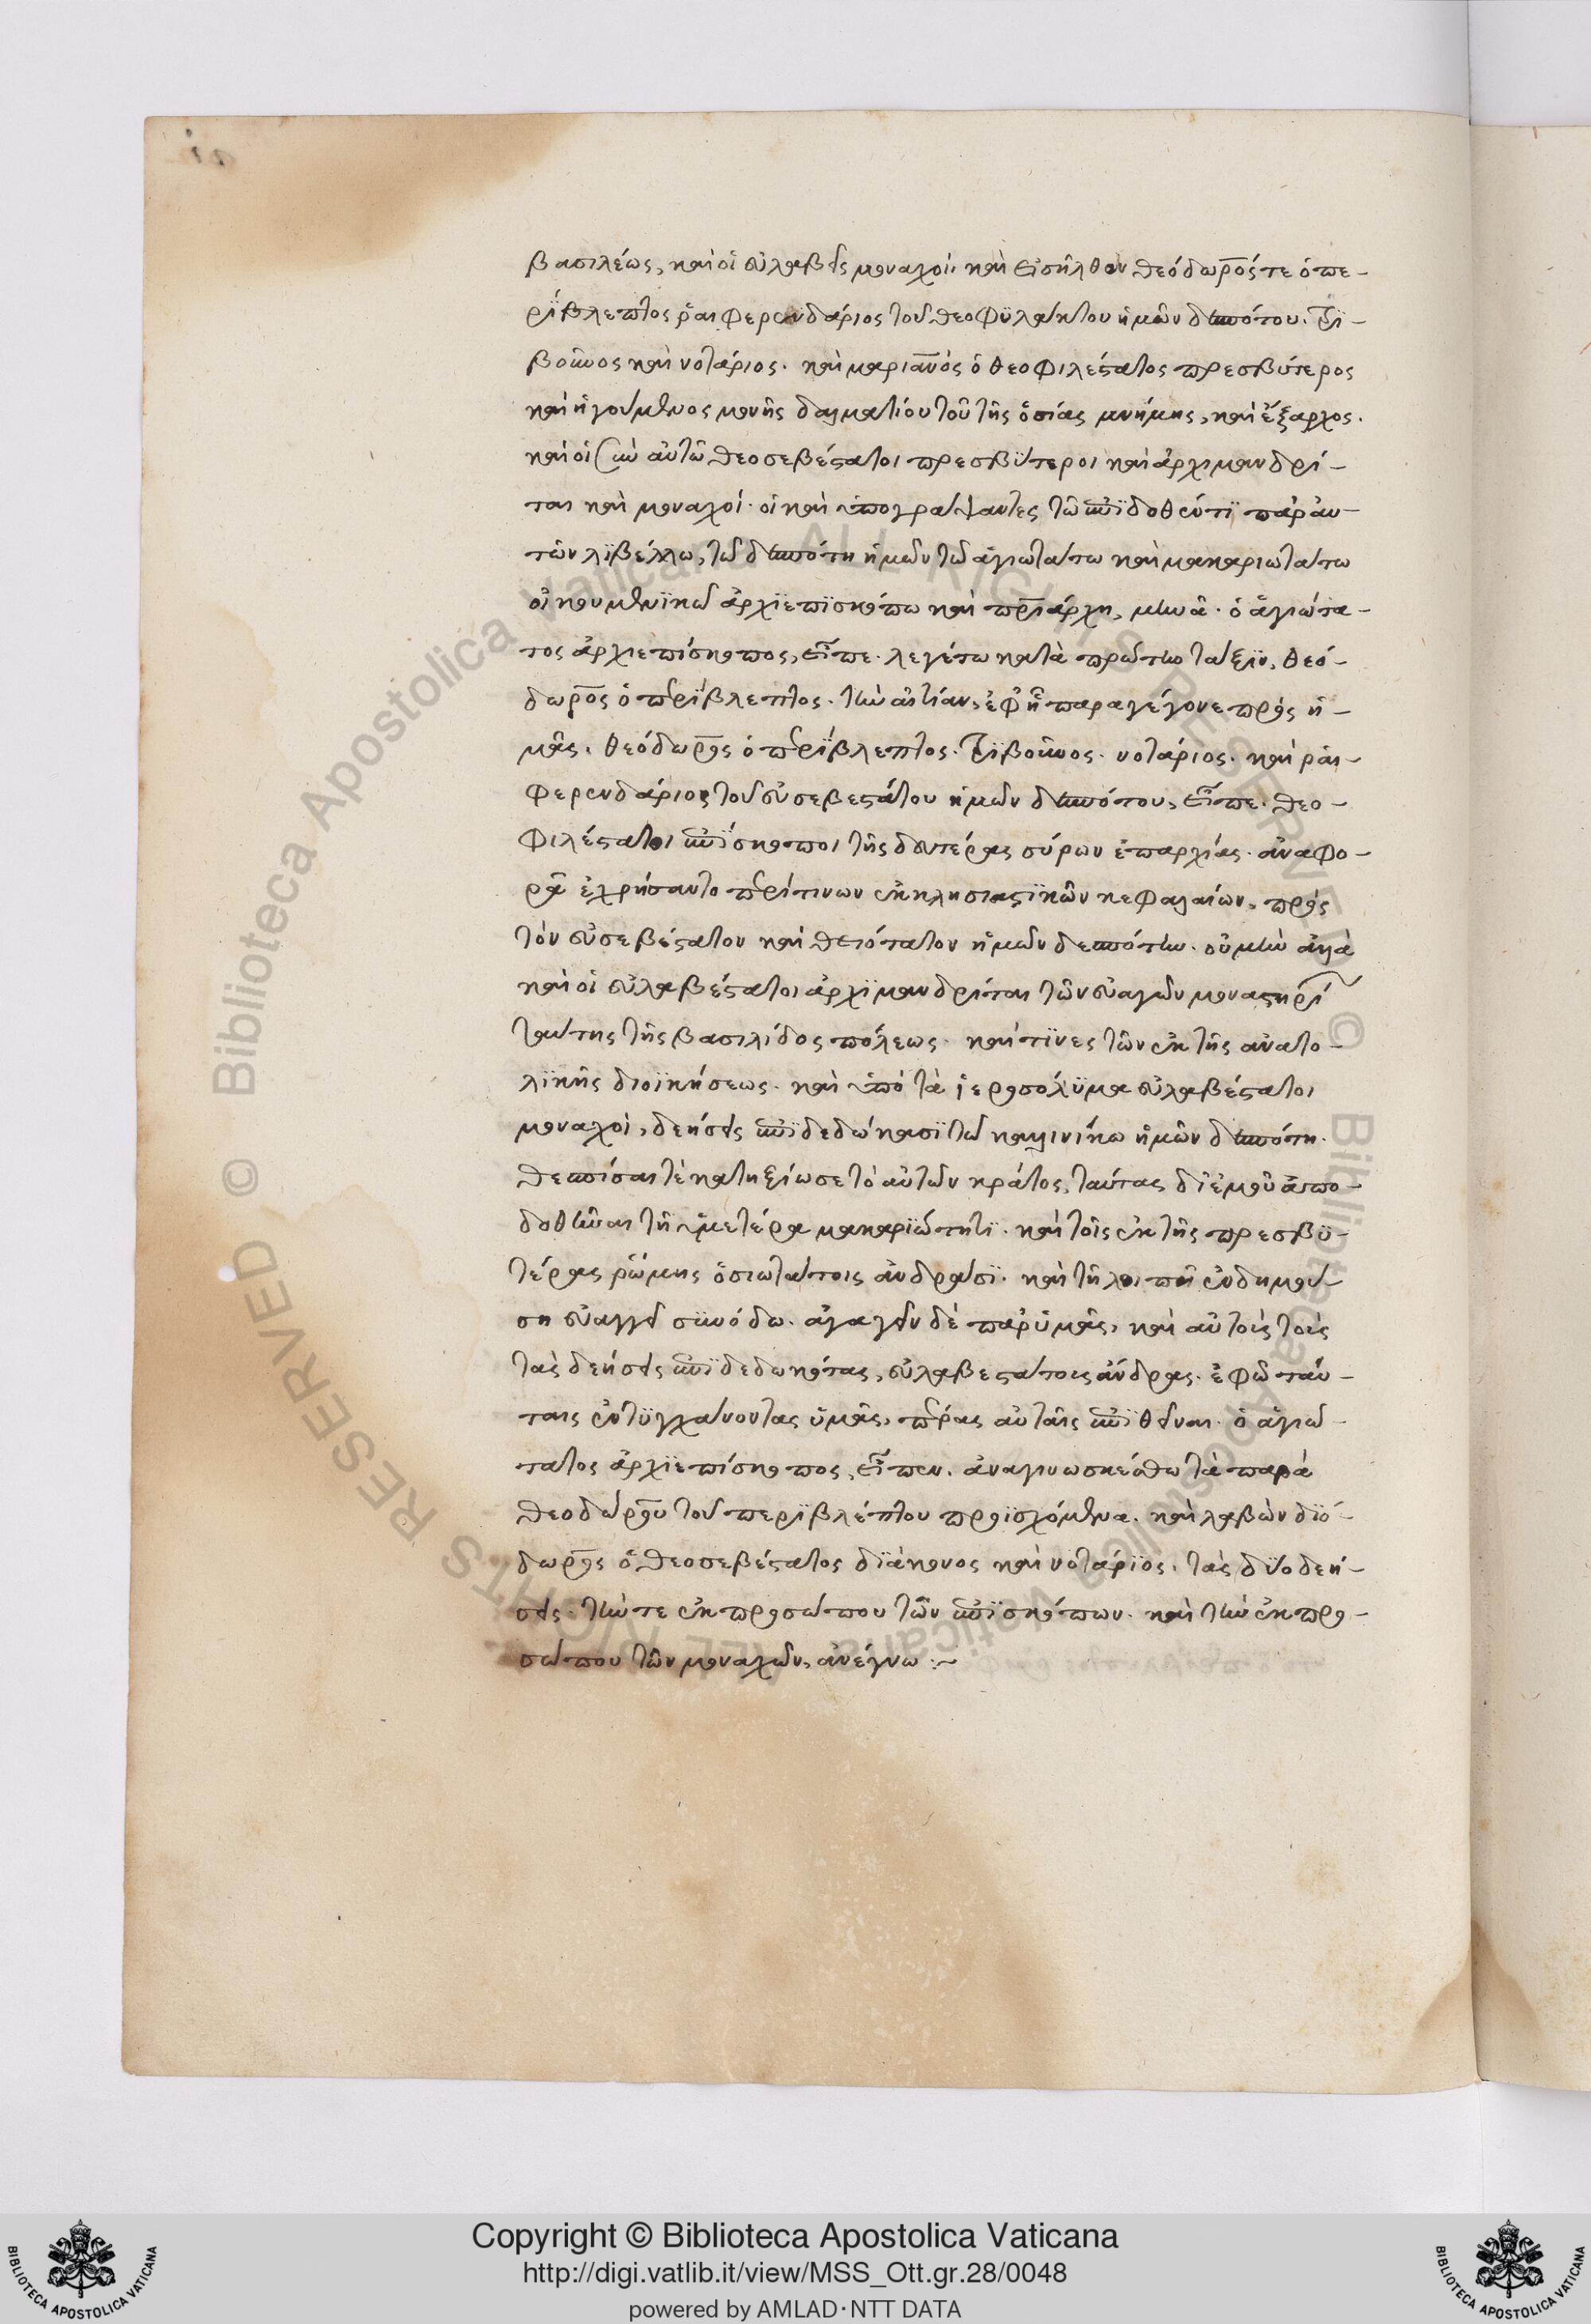 βασιλέως, καὶ οἱ εὐλαβεῖς μοναχοί· καὶ εἰσῆλθον θεόδωρός τε ὁ πε-
ρίβλεπτος ῥαιφερενδάριος τοῦ θεοφϋλάκτου ἡμῶν δεσπότου. τρϊ-
βοῦνος καὶ νοτάριος. καὶ μαριανὸς ὁ θεοφιλέστατος πρεσβύτερος
καὶ ἡγούμενος μονῆς δαλματίου τοῦ τῆς ὁσίας μνήμης, καὶ ἔξαρχος.
καὶ οἱ σὺν αὐτῶ θεοσεβέστατοι πρεσβϋτεροι καὶ ἀρχιμανδρί-
ται καὶ μοναχοί. οἱ καὶ ὑπογράψαντες τῶ ἐπϊδοθέντϊ παρ' αὐ-
τῶν λϊβέλλω, τῶ δεσπότη ἡμῶν τῶ ἁγιωτάτω καὶ μακαριωτάτω
οἰκουμενϊκῶ ἀρχϊεπϊσκόπω καὶ πατριάρχη, μηνᾶ. ὁ ἁγιώτα-
τος ἀρχιεπίσκοπος, εἶπε. λεγέτω κατὰ πρώτην τάξϊν, θεό-
δωρος ὁ περίβλεπτος. τὴν αἰτίαν, ἐφ' ἧ παραγέγονε πρὸς ἡ-
μᾶς. θεόδωρος ὁ περίβλεπτος. τρϊβοῦνος. νοτάριος. καὶ ῥαι-
φερενδάριος τοῦ εὐσεβεστάτου ἡμῶν δεσπότου, εἶπε. θεο-
φιλέστατοι ἐπϊσκοποι τῆς δευτέρας σύρων ἐπαρχίας. ἀναφο-
ρᾶ ἐχρήσαντο περί τινων ἐκκλησιαστϊκῶν κεφαλαίων, πρὸς
τὸν εὐσεβέστατον καὶ θειότατον ἡμῶν δεσπότην. οὐ μὴν ἀλλὰ
καὶ οἱ εὐλαβέστατοι ἀρχϊμανδρίται τῶν εὐαγῶν μοναστηρί
ταύτης τῆς βασιλίδος πόλεως. καί τϊνες τῶν ἐκ τῆς ἀνατο-
λϊκῆς διοϊκήσεως. καὶ ὑπὸ τὰ ἱεροσόλϋμα εὐλαβέστατοι
μοναχοὶ, δεήσεις ἐπϊδεδώκασϊ τῶ καλλινίκω ἡμῶν δεσπότη.
θεσπίσαι τὲ κατηξίωσε τὸ αὐτῶν κράτος, ταύτας δι' ἐμοῦ ἀπο-
δοθῆναι τῆ ὑμετέρα μακαριώτητϊ. καὶ τοῖς ἐκ τῆς πρεσβϋ-
τέρας ῥώμης ὁσιωτάτοις ἀνδράσϊ. καὶ τῆ λοιπῆ ἐνδημού-
ση εὐαγεῖ σϋνόδω. ἀγαγεῖν δὲ παρ' ὑμᾶς, καὶ αὐτοὺς τοὺς
τὰς δεήσεις ἐπϊδεδωκότας, εὐλαβεστάτους ἄνδρας. ἐφ' ῶ ταύ-
ταις ἐντϋγχάνοντας ὑμᾶς, πέρας αὐταῖς ἐπϊθεῖναι. ὁ ἁγιώ-
τατος ἀρχϊεπίσκοπος, εἶπεν. ἀναγινωσκέσθω τὰ παρὰ
θεοδώρου τοῦ περϊβλέπτου προϊσχόμενα. καὶ λαβὼν δϊό-
δωρος ὁ θεοσεβέστατος δϊάκονος καὶ νοτάριος, τὰς δύο δεή-
σεις. τήν τε ἐκ προσώπου τῶν ἐπϊσκόπων. καὶ τὴν ἐκ προ-
σώπου τῶν μοναχῶν, ἀνέγνω :~
Copyright © Biblioteca Apostolica Vaticana
http://digi.vatlib.it/view/MSS_Ott.gr.28/0048
powered by AMLAD·NTT DATA